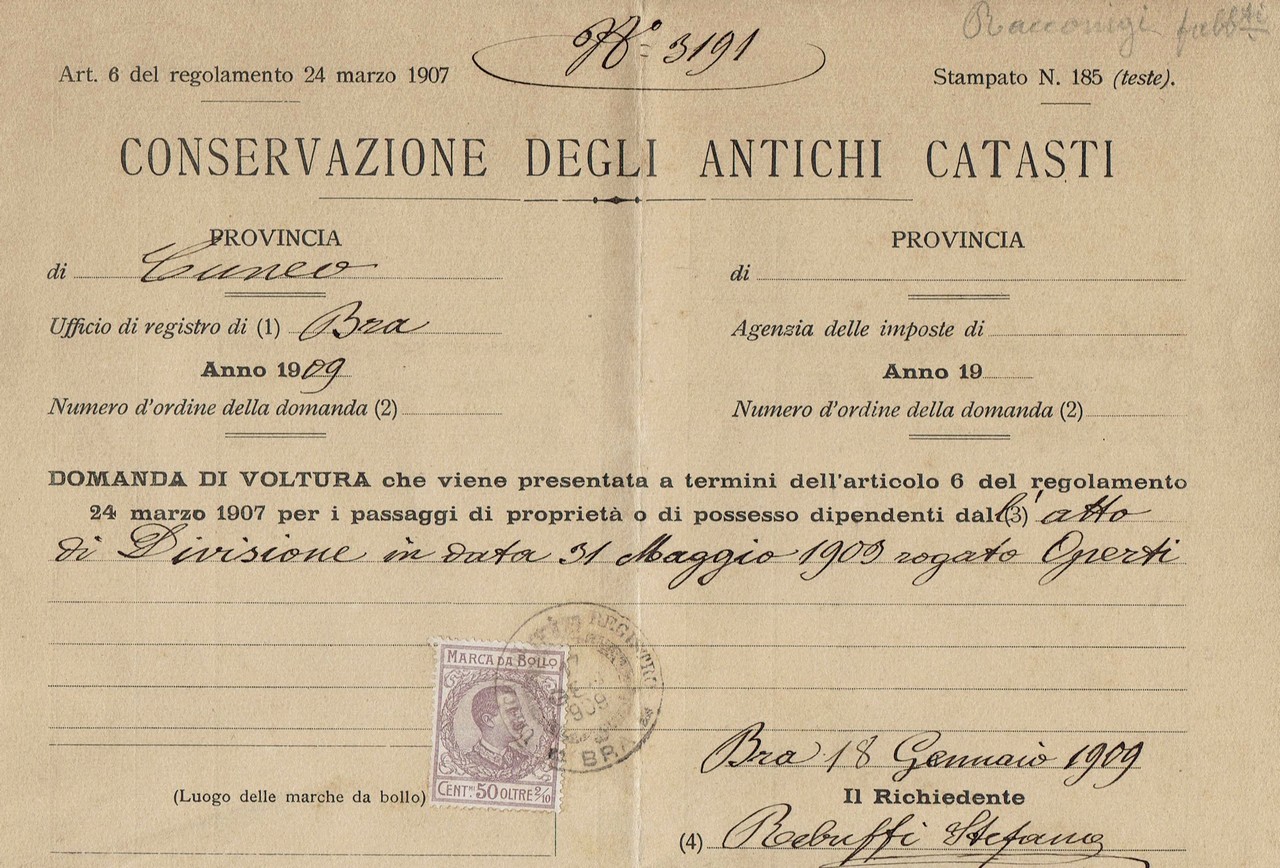 Racconigi fabb.ti
N.º 3191
Art. 6 del regolamento 24 marzo 1907
Stampato N. 185 (teste).
CONSERVAZIONE DEGLI ANTICHI CATASTI
PROVINCIA
di Cuneo
Ufficio di registro di (1) Bra
Anno 1909
Numero d'ordine della domanda (2)
PROVINCIA
di
Agenzia delle imposte di
Anno 19
Numero d'ordine della domanda (2)
DOMANDA DI VOLTURA che viene presentata a termini dell'articolo 6 del regolamento
24 marzo 1907 per i passaggi di proprietà o di possesso dipendenti dall'(3) atto
di Divisione in data 31 Maggio 1909 rogato Operti
MARCA DA BOLLO
CENT.MI 50 OLTRE 2/10
REGISTRO
BRA
(Luogo delle marche da bollo)
Bra 18 Gennaio 1909
Il Richiedente
(4) Rebuffi Stefano